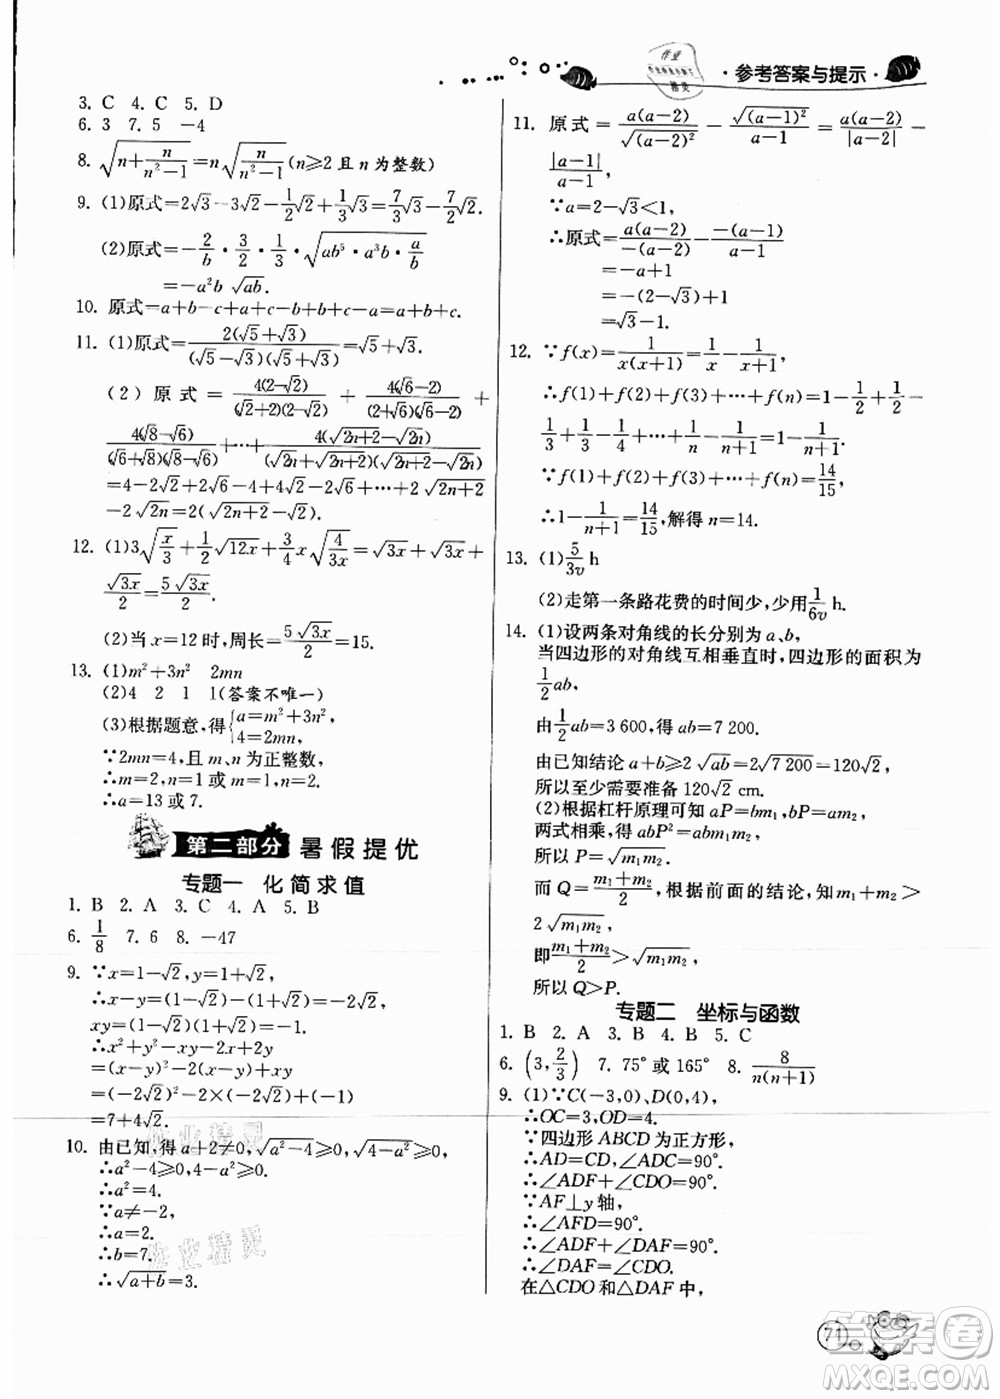 · 参考答案与提示 ·
3. C 4. C 5. D
6. 3 7. 5 －4
8. √(n＋n/(n²－1))＝n√(n/(n²－1))(n⩾2 且 n 为整数)
9. (1)原式＝2√3－3√2－1/2√2＋1/3√3＝7/3√3－7/2√2.
(2)原式＝－2/b · 3/2 · 1/3 · √(ab⁵ · a³b · a/b)
＝－a²b √(ab).
10. 原式＝a＋b－c＋a＋c－b＋b＋c－a＝a＋b＋c.
11. (1)原式＝2(√5＋√3)/((√5－√3)(√5＋√3))＝√5＋√3.
(2) 原 式 ＝ 4(2－√2)/((√2＋2)(2－√2)) ＋ 4(√6－2)/((2＋√6)(√6－2)) ＋
4(√8－√6)/((√6＋√8)(√8－√6))＋…＋4(√(2n＋2)－√(2n))/((√(2n)＋√(2n＋2))(√(2n＋2)－√(2n)))
＝4－2√2＋2√6－4＋4√2－2√6＋…＋2 √(2n＋2)
－2√(2n)＝2(√(2n＋2)－√(2n)).
12. (1)3√(x/3)＋1/2√(12x)＋3/4 x√(4/(3x))＝√(3x)＋√(3x)＋
√(3x)/2＝5√(3x)/2.
(2)当 x＝12 时,周长＝5√(3x)/2＝15.
13. (1)m²＋3n² 2mn
(2)4 2 1 1(答案不唯一)
(3)根据题意,得{a＝m²＋3n²,
4＝2mn,
∵2mn＝4,且 m、n 为正整数,
∴m＝2,n＝1 或 m＝1,n＝2.
∴a＝13 或 7.
第二部分 暑假提优
专题一 化简求值
1. B 2. A 3. C 4. A 5. B
6. 1/8 7. 6 8. －47
9. ∵x＝1－√2,y＝1＋√2,
∴x－y＝(1－√2)－(1＋√2)＝－2√2,
xy＝(1－√2)(1＋√2)＝－1.
∴x²＋y²－xy－2x＋2y
＝(x－y)²－2(x－y)＋xy
＝(－2√2)²－2×(－2√2)＋(－1)
＝7＋4√2.
10. 由已知,得 a＋2≠0,√(a²－4)⩾0,√(4－a²)⩾0,
∴a²－4⩾0,4－a²⩾0,
∴a²＝4.
∵a≠－2,
∴a＝2.
∴b＝7.
∴√(a＋b)＝3.
11. 原式＝a(a－2)/√((a－2)²)－√((a－1)²)/(a－1)＝a(a－2)/|a－2|－
|a－1|/(a－1),
∵a＝2－√3＜1,
∴原式＝a(a－2)/－(a－2)－－(a－1)/(a－1)
＝－a＋1
＝－(2－√3)＋1
＝√3－1.
12. ∵f(x)＝1/(x(x＋1))＝1/x－1/(x＋1),
∴f(1)＋f(2)＋f(3)＋…＋f(n)＝1－1/2＋1/2－
1/3＋1/3－1/4＋…＋1/n－1/(n＋1)＝1－1/(n＋1).
∵f(1)＋f(2)＋f(3)＋…＋f(n)＝14/15,
∴1－1/(n＋1)＝14/15,解得 n＝14.
13. (1)5/(3v) h
(2)走第一条路花费的时间少,少用1/(6v) h.
14. (1)设两条对角线的长分别为 a、b,
当四边形的对角线互相垂直时,四边形的面积为
1/2ab,
由1/2ab＝3 600,得 ab＝7 200.
由已知结论 a＋b⩾2 √(ab)＝2√(7 200)＝120√2,
所以至少需要准备 120√2 cm.
(2)根据杠杆原理可知 aP＝bm₁,bP＝am₂,
两式相乘,得 abP²＝abm₁m₂,
所以 P＝√(m₁m₂).
而 Q＝(m₁＋m₂)/2,根据前面的结论,知 m₁＋m₂＞
2 √(m₁m₂),
即(m₁＋m₂)/2＞√(m₁m₂),
所以 Q＞P.
专题二 坐标与函数
1. B 2. A 3. B 4. B 5. C
6. (3,2/3) 7. 75° 或 165° 8. 8/(n(n＋1))
9. (1)∵C(－3,0)、D(0,4),
∴OC＝3,OD＝4.
∵四边形 ABCD 为正方形,
∴AD＝CD,∠ADC＝90°.
∴∠ADF＋∠CDO＝90°.
∵AF⊥y 轴,
∴∠AFD＝90°.
∴∠ADF＋∠DAF＝90°.
∴∠DAF＝∠CDO.
在△CDO 和△DAF 中,
71
作业精灵
作业精灵
答案卷
MXQE.COM